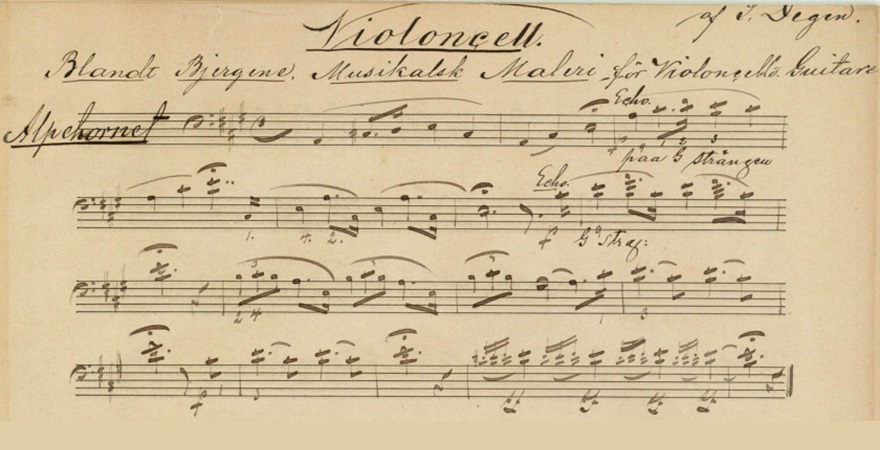 Violoncell.
af S. Degen.
Blandt Bjergene. Musikalsk Maleri för Violoncello. Guitare
Alpehornet
Echo.
paa G strängen
Echo.
f
f